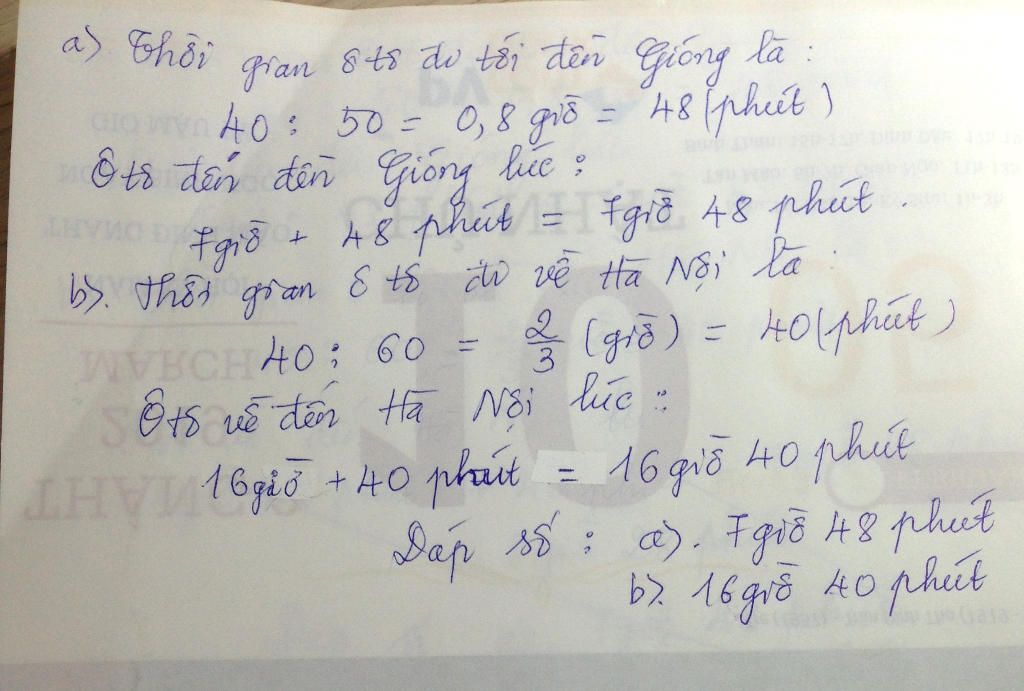 a) Thời gian ô tô đi tới đền Gióng là :
40 : 50 = 0,8 giờ = 48 (phút)
Ô tô đến đền Gióng lúc :
7giờ + 48 phút = 7giờ 48 phút .
b). Thời gian ô tô đi về Hà Nội là :
40 : 60 = 2/3 (giờ) = 40 (phút)
Ô tô về đến Hà Nội lúc :
16giờ + 40 phút = 16 giờ 40 phút
Đáp số : a). 7giờ 48 phút
b). 16giờ 40 phút